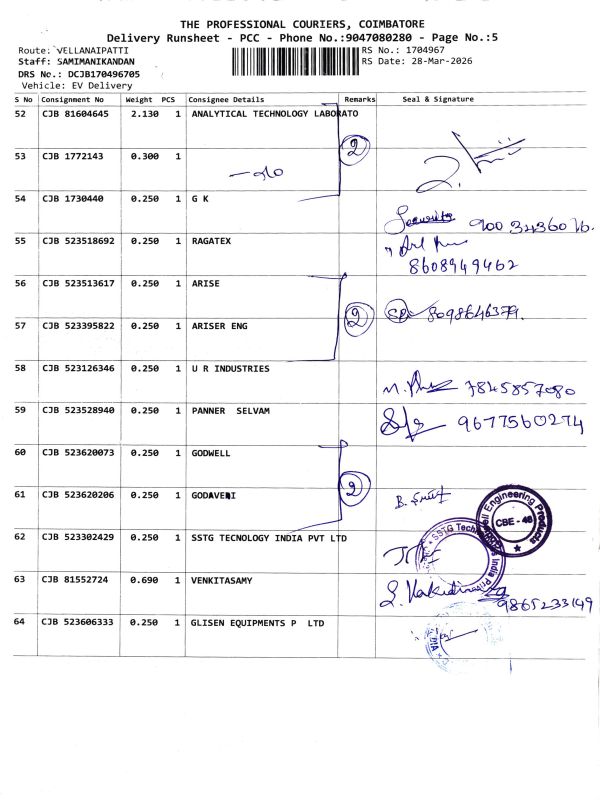 THE PROFESSIONAL COURIERS, COIMBATORE
Delivery Runsheet - PCC - Phone No.:9047080280 - Page No.:5
Route: VELLANAIPATTI
RS No.: 1704967
Staff: SAMIMANIKANDAN
RS Date: 28-Mar-2026
DRS No.: DCJB170496705
Vehicle: EV Delivery
S No Consignment No Weight PCS Consignee Details Remarks Seal & Signature
52 CJB 81604645 2.130 1 ANALYTICAL TECHNOLOGY LABORATO
2
53 CJB 1772143 0.300 1
54 CJB 1730440 0.250 1 G K
Security 900 3436076.
55 CJB 523518692 0.250 1 RAGATEX
8608949462
56 CJB 523513617 0.250 1 ARISE
2 8098646379.
57 CJB 523395822 0.250 1 ARISER ENG
58 CJB 523126346 0.250 1 U R INDUSTRIES
7845857080
59 CJB 523528940 0.250 1 PANNER SELVAM
9677560274
60 CJB 523620073 0.250 1 GODWELL
2
61 CJB 523620206 0.250 1 GODAVERI
Engineering Products
CBE - 48
62 CJB 523302429 0.250 1 SSTG TECNOLOGY INDIA PVT LTD
63 CJB 81552724 0.690 1 VENKITASAMY
9865233149
64 CJB 523606333 0.250 1 GLISEN EQUIPMENTS P LTD